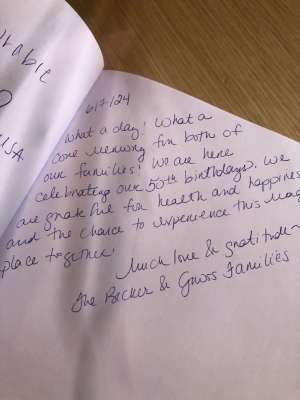 urable
USA
6/7/24
What a day! What a
core memory for both of
our families! We are here
celebrating our 50th birthdays. We
are grateful for health and happines
and the chance to experience this mag
place together.
Much love & gratitude~
The Becker & Gross Families